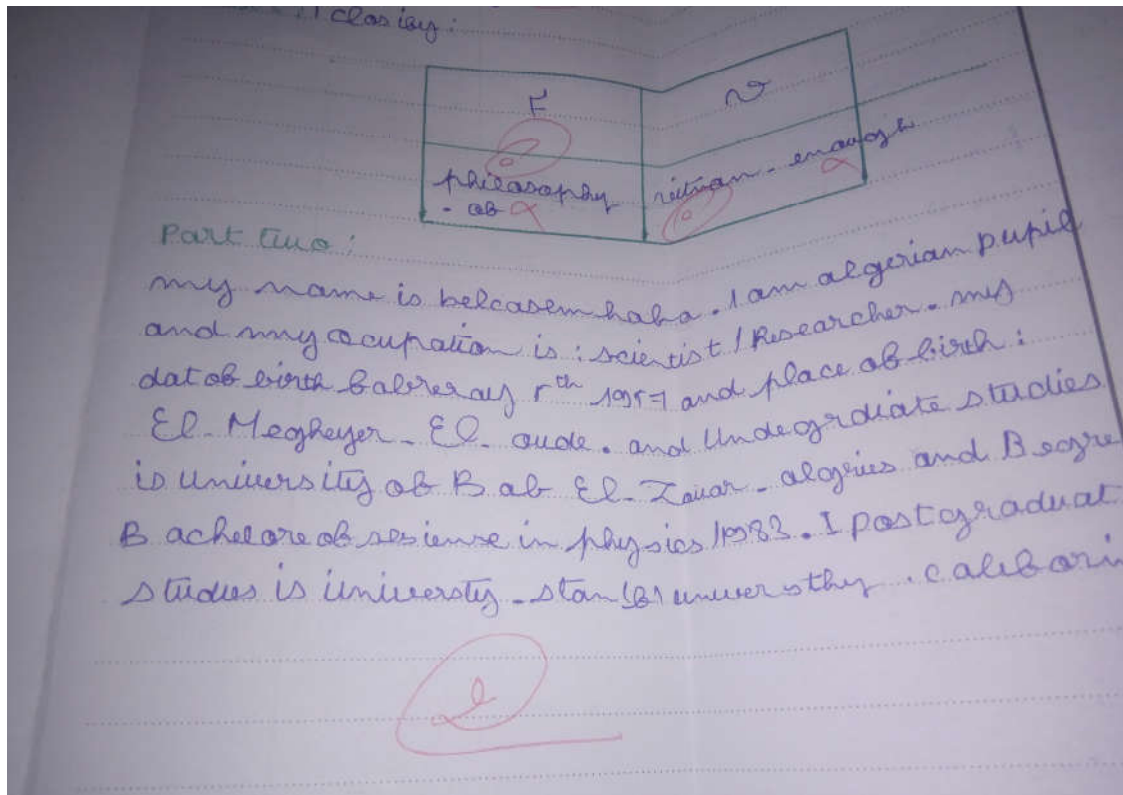 closiey:
F v
philosophy ritman - enaugh
- ob
Part Two:
my name is belcasem haba. I am algerian pupil
and my ocupation is: scientist / Researcher. my
dat ob birth 1957 and place ob birth:
El-Megheyer - El-oude. and Undegrdiate studies
is University ob Bab El-Zouar - algeries and Begre
Bachelore ob in physics 1983. I postgraduat
studies is university - calibari
2